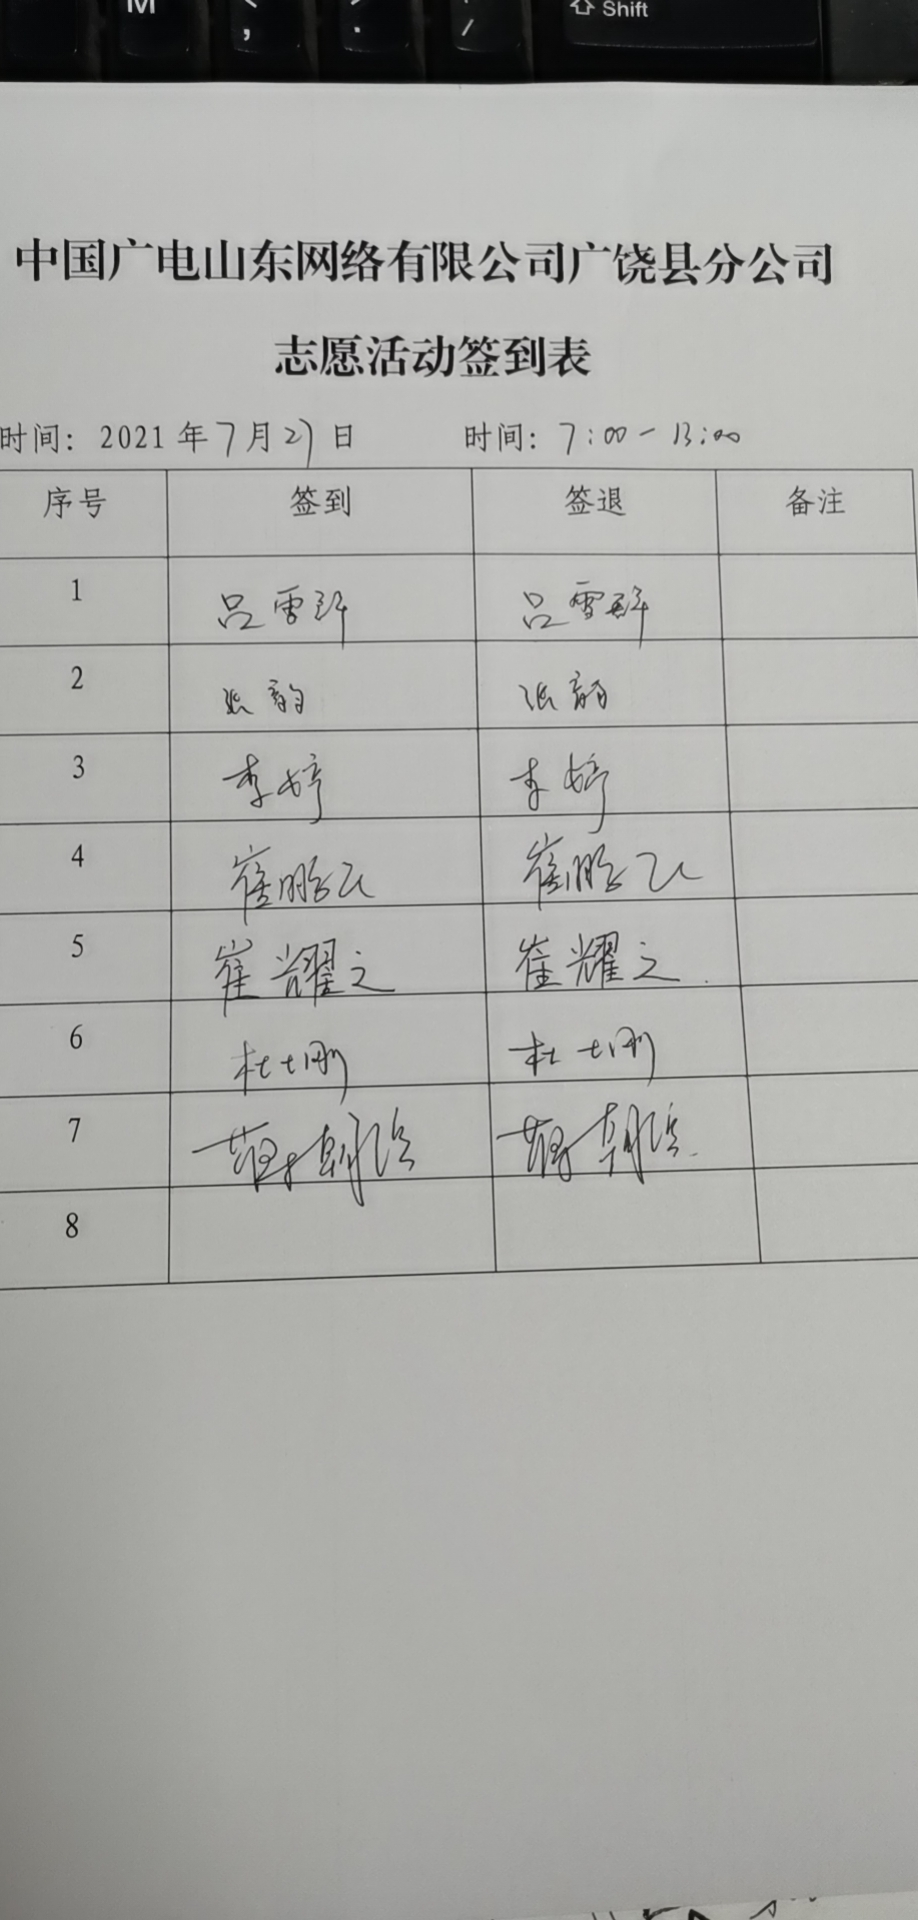 M < , > . / Shift
中国广电山东网络有限公司广饶县分公司
志愿活动签到表
时间: 2021 年 7 月 27 日 时间: 7:00-13:00
序号 签到 签退 备注
1 吕雪 吕雪
2 张韵 张韵
3 李婷 李婷
4 崔鹏飞 崔鹏飞
5 崔耀之 崔耀之
6 杜士刚 杜士刚
7 朝滨 朝滨
8